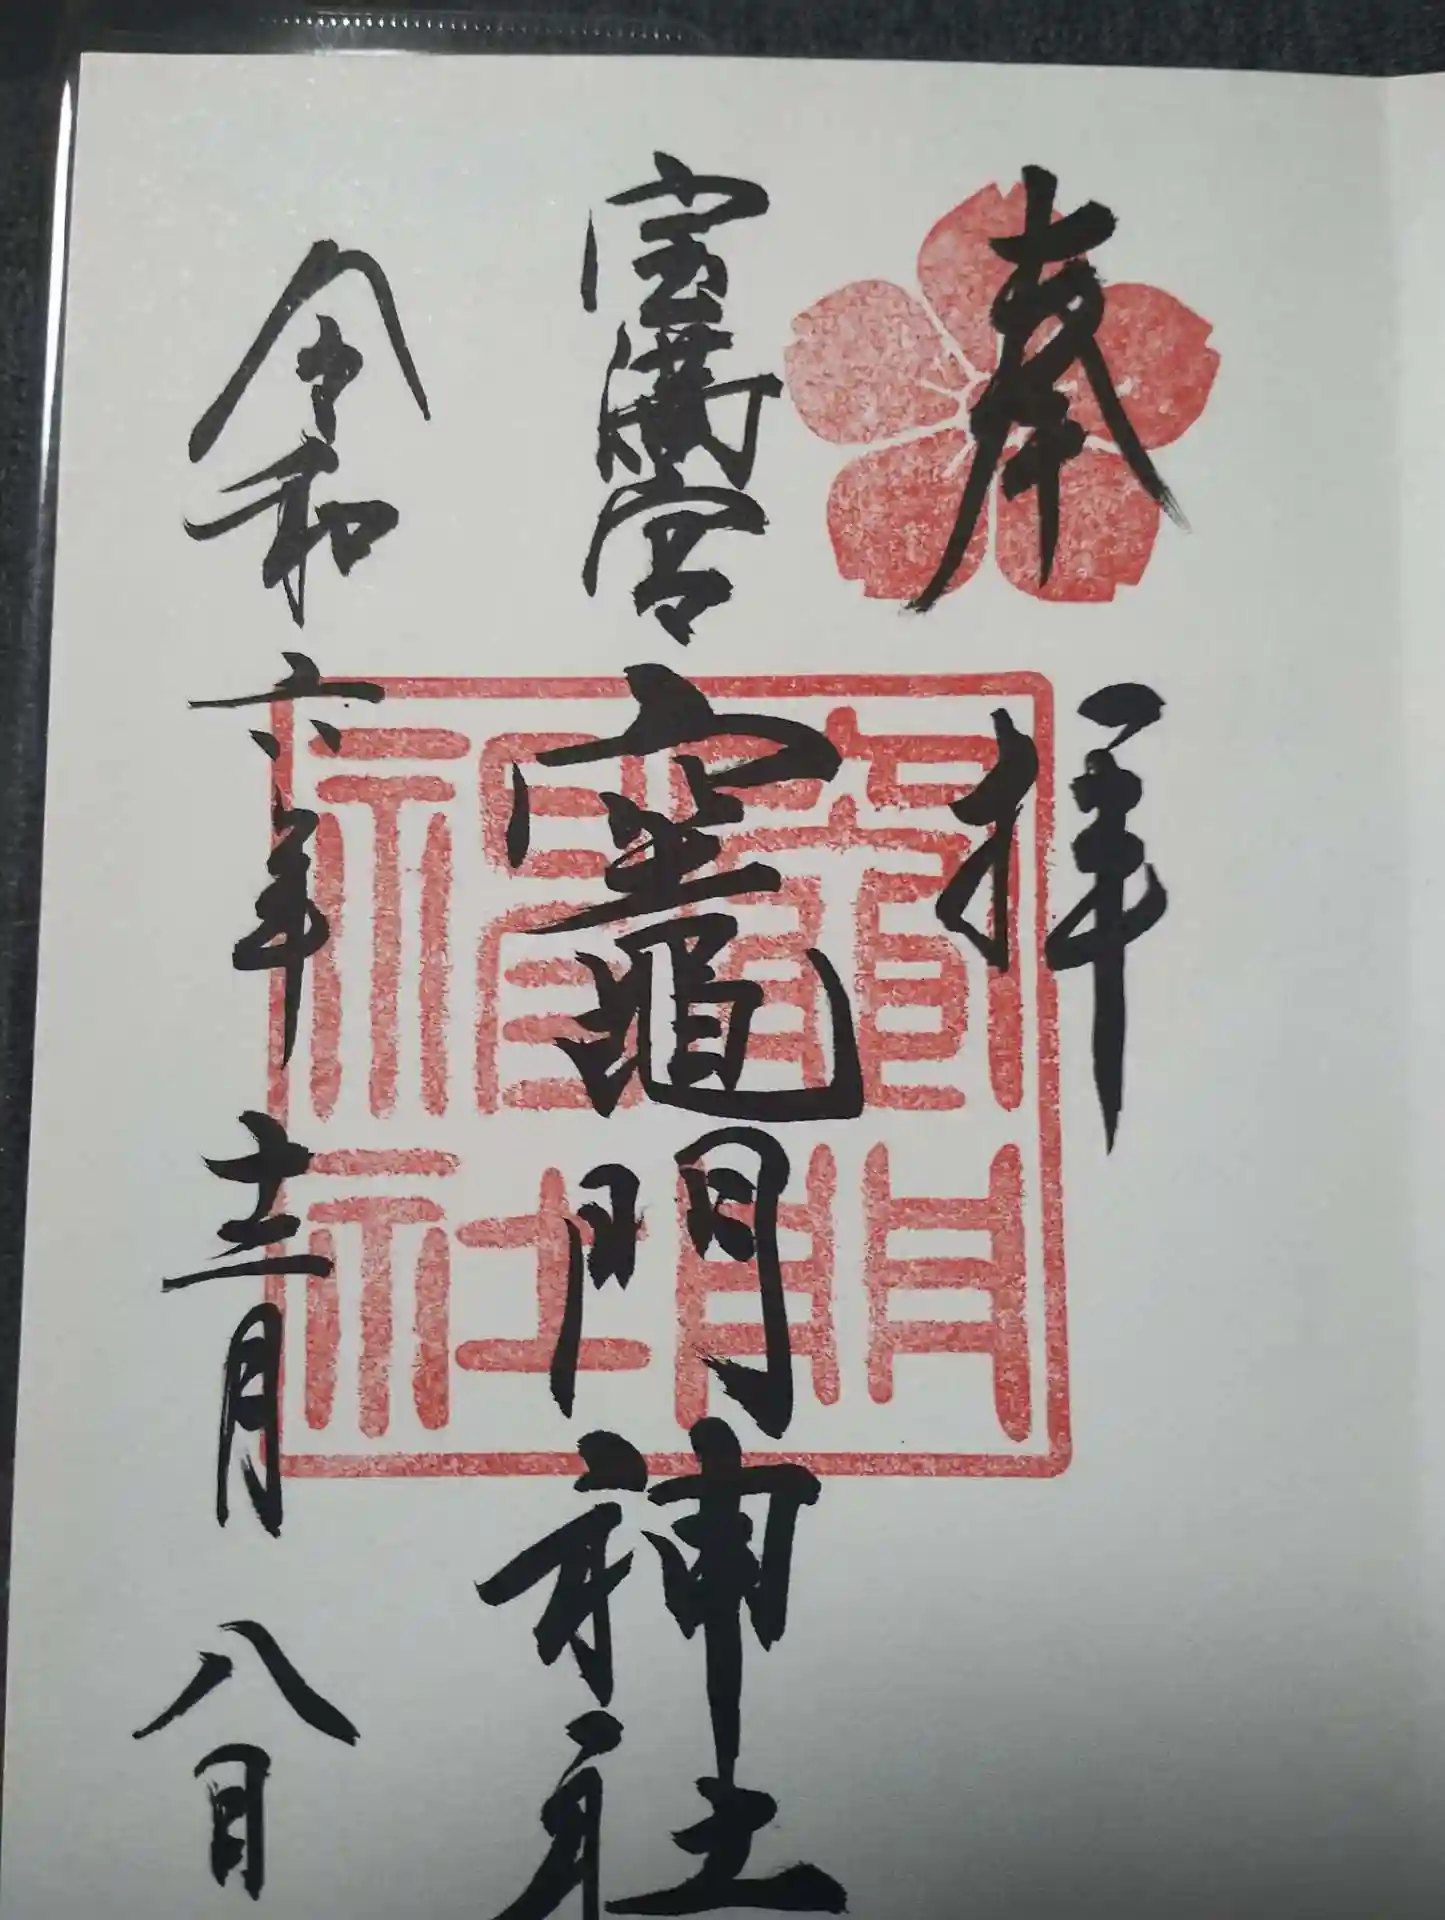 奉拝
宝満宮
竈門神社
令和六年十二月八日
竈門
神社